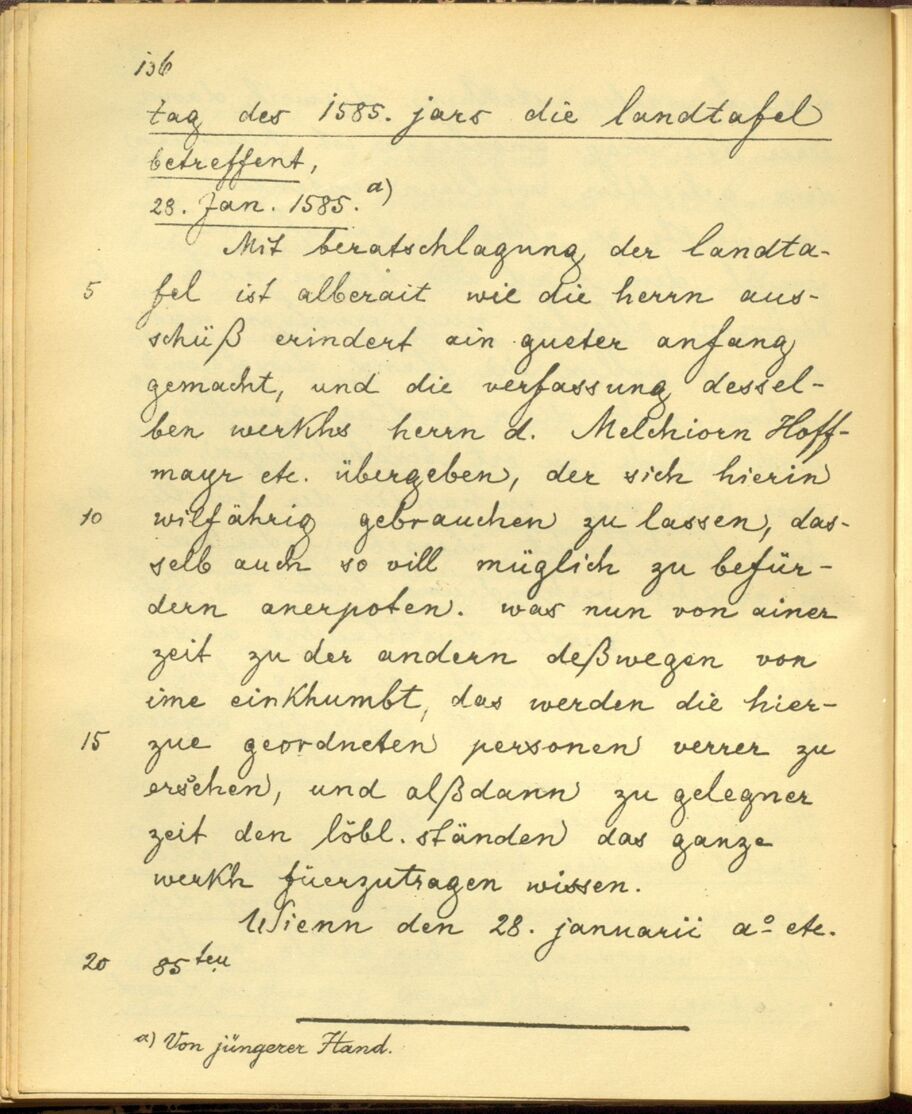 136
tag des 1585. jars die landtafel
betreffent,
28. Jan. 1585. a)
Mit beratschlagung der landta-
5 fel ist alberait wie die herrn aus-
schüß erindert ain gueter anfang
gemacht, und die verfassung dessel-
ben werkhs herrn d. Melchiorn Hoff-
mayr etc. übergeben, der sich hierin
10 wilfährig gebrauchen zu lassen, das-
selb auch so vill müglich zu befür-
dern anerpoten. was nun von ainer
zeit zu der andern deßwegen von
ime einkhumbt, das werden die hier-
15 zue geordneten personen verrer zu
ersehen, und alßdann zu gelegner
zeit den löbl. ständen das ganze
werkh füerzutragen wissen.
Wienn den 28. januarii aº etc.
20 85ten
a) Von jüngerer Hand.